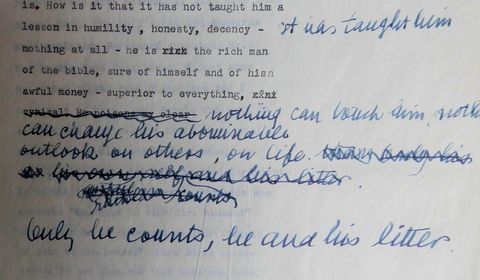 is. How is it that it has not taught him a
lesson in humility , honesty, decency - it has taught him
nothing at all - he is rixi the rich man
of the bible, sure of himself and of hisn
awful money - superior to everything,
cynical. He poisons my clear nothing can touch him, noth
can change his abominable
outlook on others, on life. his
own self and his litter.
counts
Only he counts, he and his litter.